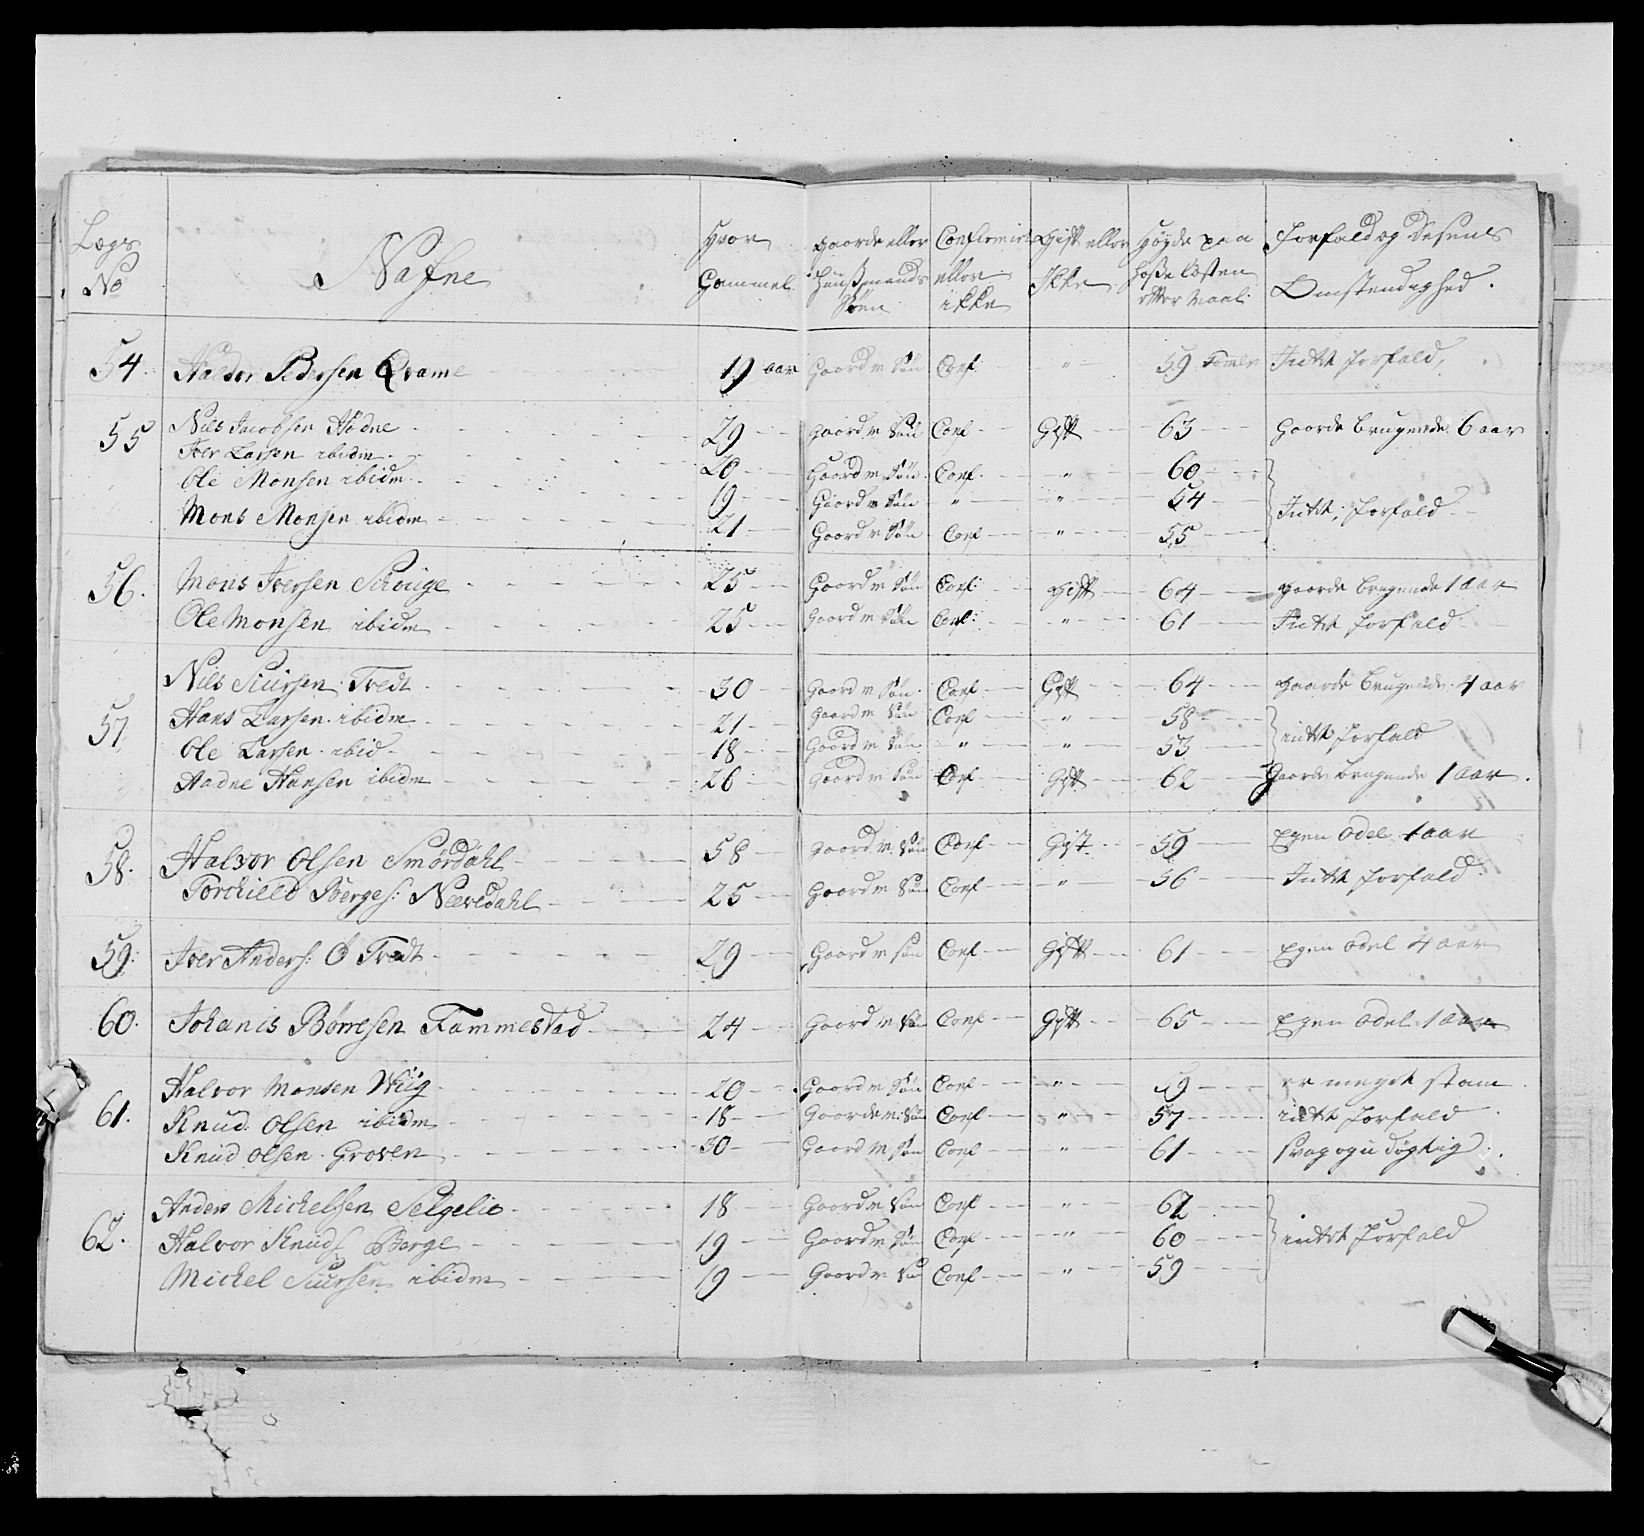 Lægs No | Nafne | Hvor Gammel | gaarde eller Huusmands Søn | Confirmirt eller ikke | Gift eller Ikke | Høyde paa Hose Læsten efter Maal: | Forfald og Desens Omstendighed.
54. Halvor Pedersen Qvame 19 aar Gaord m Søn Conf " 59 Tomer Intet forfald.
55 Nils Jacobsen Hødne 29 Gaord m Søn Conf Gift 63 Gaorde brugende 6 aar
Iver Larsen ibidm 20 Gaord m Søn Conf. " 60
Ole Monsen ibidm 19 Gaord m Søn " " 54 Intet forfald
Mons Monsen ibidm 21 Gaord m Søn Conf " 55
56. Mons Iversen Schouge 25 Gaord m Søn Conf: gift 64 gaorde brugende 1 aar
Ole Monsen ibidm 25 Gaord m Søn Conf: " 61 Intet forfald
57 Nils Siursen Tvedt 30 Gaord m Søn Conf Gift 64 gaarde brugende 4 aar
Hans Larsen ibidm 21 Gaord m Søn Conf " 58
Ole Larsen ibid 18 Gaord m Søn " " 53 intet forfald
Aadne Hansen ibidm 26 Gaord m Søn Conf Gift 62 Gaorde brugende 1 aar.
58. Halvor Olsen Smördahl 58 Gaord m Søn Conf Gift 59 Egen odel 1 aar
Torchield Børges: Nævedahl 25 Gaord m Søn Conf " 56 Intet forfald
59: Iver Anders: Ø Tvedt 29 Gaord m Søn Conf Gift 61 Egen odel 4 aar
60. Johanes Børresen Tammestad 24 Gaord m Søn Conf Gift 65 Egen odel 1 aar
61. Halvor Monsen Wiig 20 Gaord m Søn Conf " 59 er meget stam
Knud Olsen ibidm 18 Gaorde m: Søn Conf " 57 intet forfald
Knud Olsen Groven 30 Gaord m Søn Conf " 61 svag og udøgtig.
62. Anders Michelsen Selgelie 18 Gaord m Søn Conf " 62
Halvor Knuds Berge 19 Gaord m Søn Conf " 60 intet forfald
Michel Siursen ibidm 19 Gaord m Søn Conf " 59